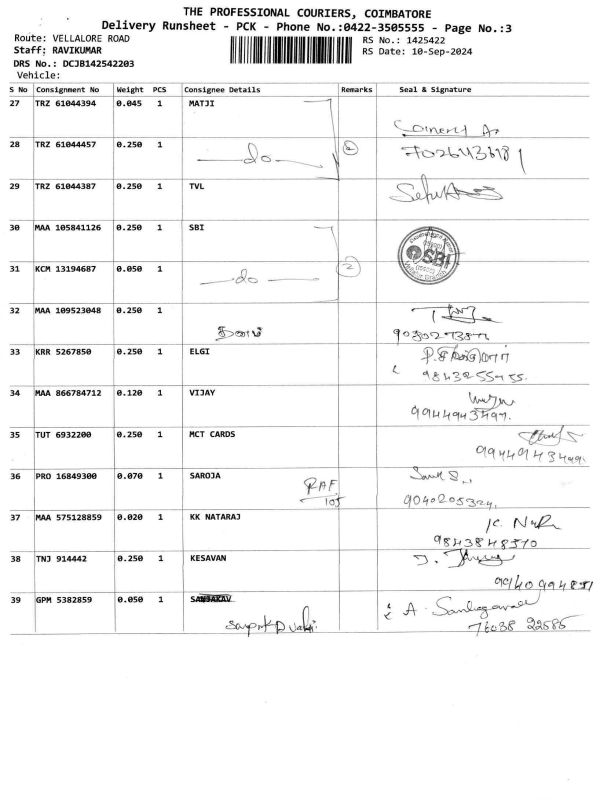 THE PROFESSIONAL COURIERS, COIMBATORE
Delivery Runsheet - PCK - Phone No.:0422-3505555 - Page No.:3
Route: VELLALORE ROAD RS No.: 1425422
Staff: RAVIKUMAR RS Date: 10-Sep-2024
DRS No.: DCJB142542203
Vehicle:
S No Consignment No Weight PCS Consignee Details Remarks Seal & Signature
27 TRZ 61044394 0.045 1 MATJI
28 TRZ 61044457 0.250 1 —do— 2
29 TRZ 61044387 0.250 1 TVL
30 MAA 105841126 0.250 1 SBI SBI
31 KCM 13194687 0.050 1 —do— 2
32 MAA 109523048 0.250 1
33 KRR 5267850 0.250 1 ELGI
9843255455
34 MAA 866784712 0.120 1 VIJAY
9944943497.
35 TUT 6932200 0.250 1 MCT CARDS
36 PRO 16849300 0.070 1 SAROJA RAF
105
9040205324,
37 MAA 575128859 0.020 1 KK NATARAJ
9843848370
38 TNJ 914442 0.250 1 KESAVAN
9940994851
39 GPM 5382859 0.050 1 SANJAKAV
76038 22585